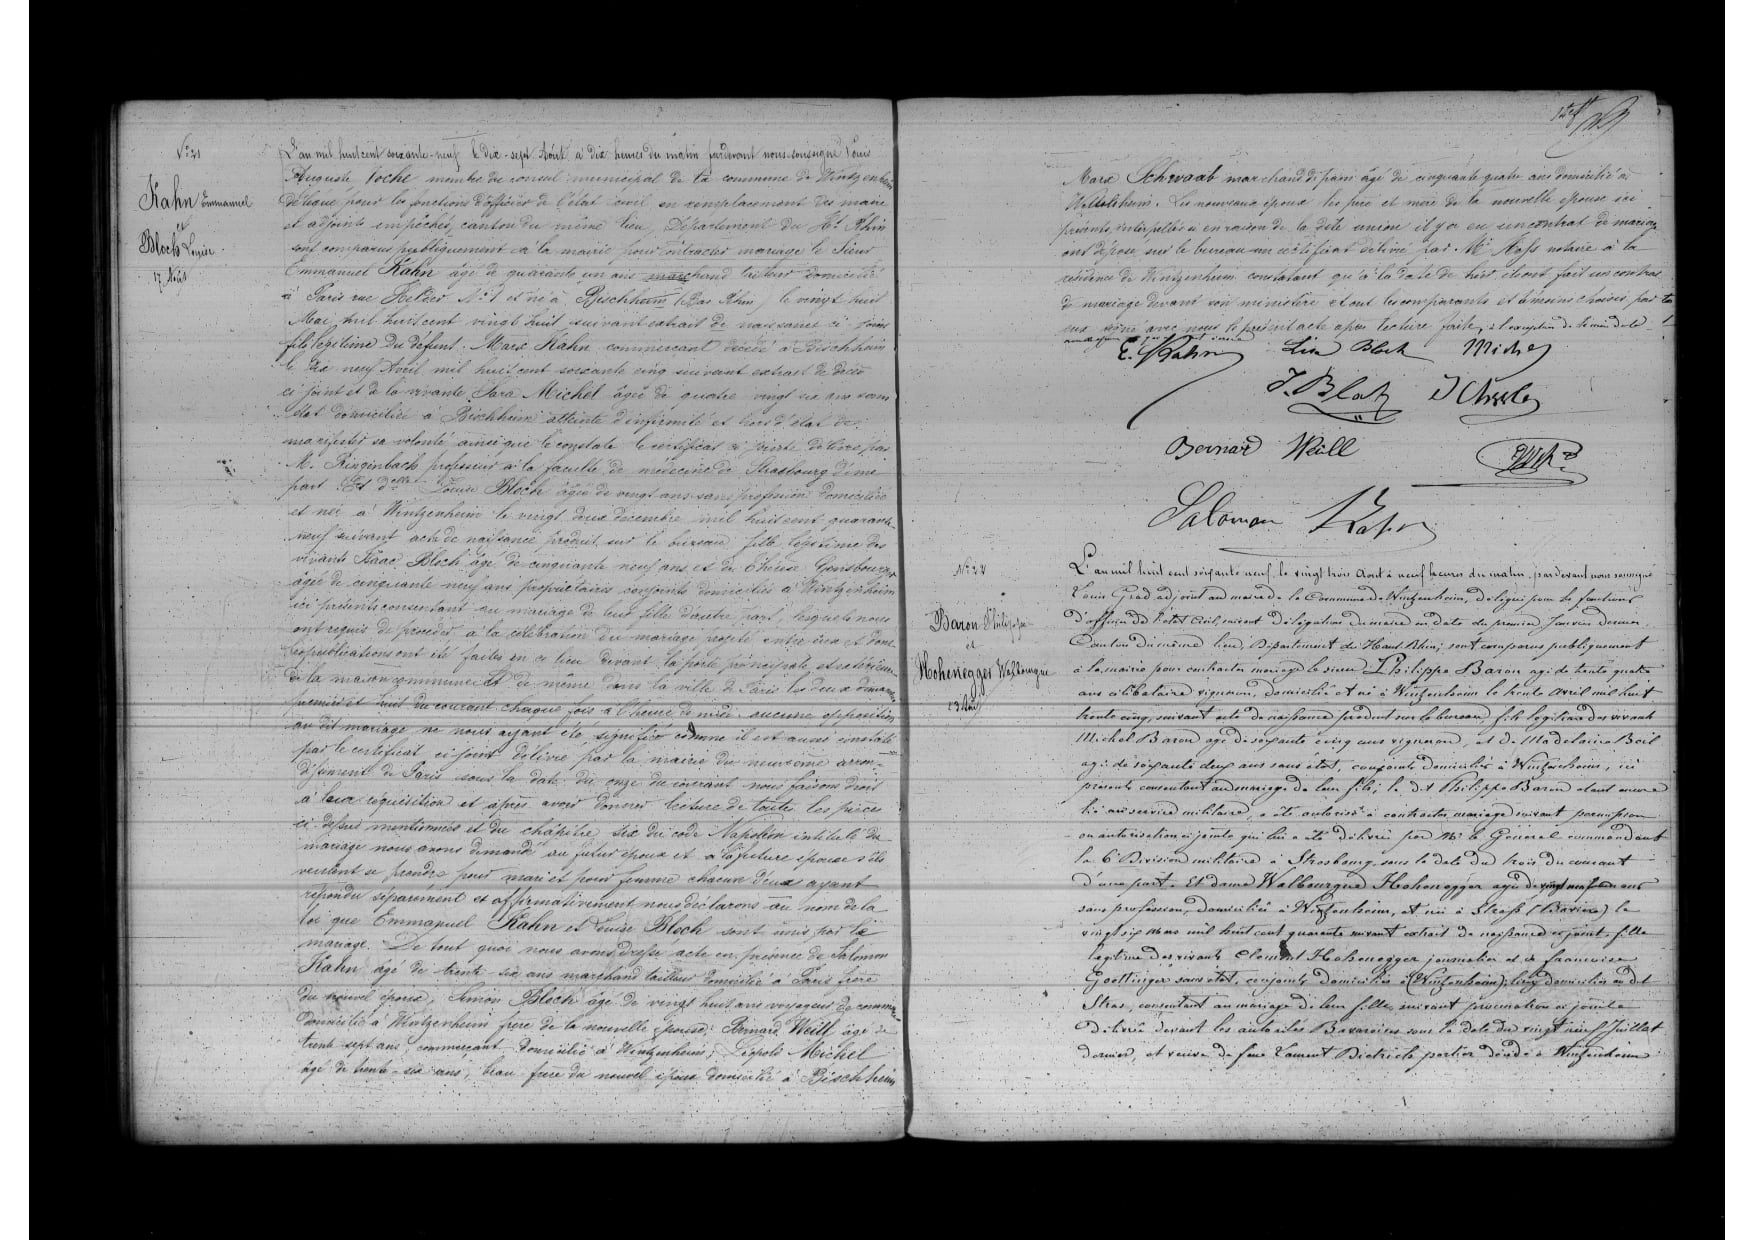 N° 21
Kahn Emmanuel
et
Bloch Louise
17 Août
L'an mil huit cent soixante-neuf le dix-sept Août à dix heures du matin pardevant nous soussigné Louis
Auguste membre du conseil municipal de la commune de Wintzenheim
délégué pour les fonction d'officier de l'état civil en remplacement des maire
et adjoints empêchés, canton du même lieu, Département du Ht Rhin
sont comparus publiquement à la mairie pour contracter mariage le Sieur
Emmanuel Kahn âgé de quarante un ans marchand tailleur domicilié
à Paris rue N° 1 et né à Bischheim (Bas Rhin) le vingt huit
Mai mil huit cent vingt huit suivant extrait de naissance ci-joint
fils légitime du défunt Marx Kahn commerçant décédé à Bischheim
le dix neuf Avril mil huit cent soixante cinq suivant extrait de décès
ci joint et de la vivante Sara Michel âgée de quatre vingt six ans sans
état domiciliée à Bischheim atteinte d'infirmité et hors d'état de
manifester sa volonté ainsi que le constate le certificat ci joint délivré par
M. Ringinbach professeur à la faculté de médecine de Strasbourg d'une
part Et dlle Louise Bloch âgée de vingt ans sans profession domiciliée
et née à Wintzenheim le vingt deux décembre mil huit cent quarante
neuf suivant acte de naissance produit sur le bureau fille légitime des
vivants Isaac Bloch âgé de cinquante neuf ans et de Thérèse Gensbourger
âgée de cinquante neuf ans propriétaires conjoints domiciliés à Wintzenheim
ici présents consentant au mariage de leur fille d'autre part, lesquels nous
ont requis de procéder à la célébration du mariage projeté entre eux et dont
les publications ont été faites en ce lieu devant la porte principale et extérieure
de la maison commune et de même dans la ville de Paris les deux dimanches
premier et huit du courant chaque fois à l'heure de midi aucune opposition
au dit mariage ne nous ayant été signifiée comme il est aussi constaté
par le certificat ci-joint délivré par la mairie du neuvième arron-
dissement de Paris sous la date du onze du courant nous faisons droit
à leur réquisition et après avoir donné lecture de toute les pièces
ci-dessus mentionnées et du chapitre six du code Napoléon intitulé du
mariage nous avons demandé au futur époux et à la future épouse s'ils
veulent se prendre pour mari et pour femme chacun d'eux ayant
répondu séparément et affirmativement nous déclarons au nom de la
loi que Emmanuel Kahn et Louise Bloch sont unis par le
mariage. De tout quoi nous avons dressé acte en présence de Salomon
Kahn âgé de trente six ans marchand tailleur domicilié à Paris frère
du nouvel époux, Simon Bloch âgé de vingt huit ans voyageur de commerce
domicilié à Wintzenheim frère de la nouvelle épouse; Bernard Weill âgé de
trente sept ans, commerçant domicilié à Wintzenheim; Léopold Michel
âgé de trente-six ans, beau-frère du nouvel époux domicilié à Bischheim
Marx Schwaab marchand âgé de cinquante quatre ans domicilié à
Les nouveaux époux les père et mère de la nouvelle épouse ici
présents interpellés à en raison de la dite union il y a eu un contrat de mariage
ont déposé sur le bureau un certificat délivré par Me notaire à la
résidence de Wintzenheim constatant qu'à la date de hier ils ont fait un contrat
de mariage devant son ministère et ont les comparants et témoins choisis par
eux signé avec nous le présent acte après lecture faite, à l'exception de la mère de la
E. Kahn Bloch Michel
Bloch
Bernard Weill
Salomon Kahn
N° 22
Baron Philippe
et
Hohenegger Walbourgue
23 Août
L'an mil huit cent soixante neuf le vingt trois Août à neuf heures du matin, pardevant nous soussigné
Louis Grad adjoint au maire de la Commune de Wintzenheim, délégué pour les fonctions
d'officier de l'état civil, suivant délégation du maire en date du premier Janvier dernier
Canton du même lieu, Département du Haut Rhin; sont comparus publiquement
à la mairie pour contracter mariage le sieur Philippe Baron agé de trente quatre
ans célibataire vigneron, domicilié et né à Wintzenheim le trente Avril mil huit
trente cinq, suivant acte de naissance produit sur le bureau, fils légitime des vivants
Michel Baron agé de soixante cinq ans vigneron, et de Madelaine Boil
agée de soixante deux ans sans état, conjoints domiciliés à Wintzenheim, ici
présents consentant au mariage de leur fils; le dit Philippe Baron étant encore
lié au service militaire, a été autorisé à contracter mariage suivant permission
ou autorisation ci jointe qui lui a été délivrée par Mr le Général commandant
la 6e Division militaire à Strasbourg, sous la date du trois du courant
d'une part. Et dame Walbourgue Hohenegger agée de vingt neuf ans
sans profession, domiciliée à Wintzenheim, et née à Strass (Bavière) le
vingt six Mars mil huit cent quarante suivant extrait de naissance ci joint, fille
légitime des vivants Clément Hohenegger journalier et de Francoise
Goettinger sans état, conjoints domiciliés à (Wintzenheim); lesq. domiciliés au dit
Stras, consentant au mariage de leur fille, suivant procuration ci jointe
délivrée devant les autorités Bavaroises sous la date du vingt neuf Juillet
dernier, et veuve de feu Laurent Dietrich portier décédé à Wintzenheim